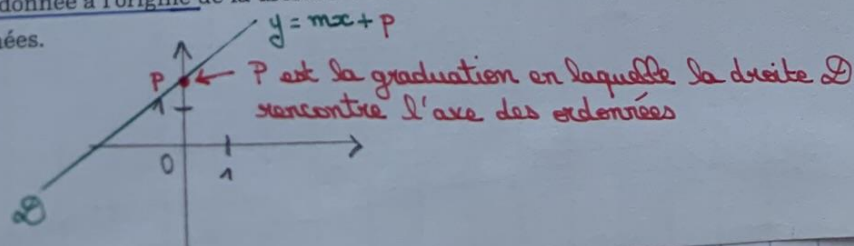 donnée à l'origine de la
ées.
y = mx + p
P
P est la graduation en laquelle la droite D
rencontre l'axe des ordonnées
1
0
1
D